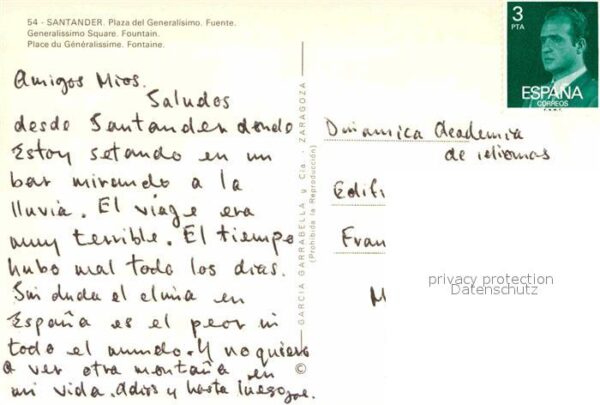 54 - SANTANDER. Plaza del Generalísimo. Fuente.
Generalissimo Square. Fountain.
Place du Généralissime. Fontaine.
Amigos Mios.
Saludos
desde Santander dondo
Estoy setando en un
bar mirando a la
lluvia. El viage era
muy terrible. El tiempo
hubo mal todo los dias.
Sin duda el clima en
España es el peor in
todo el mundo. Y no quiero
a ver otra montaña en
mi vida. Adios y hasta luego
GARCIA GARRABELLA y Cia. - ZARAGOZA
(Prohibida la Reproducción)
©
3
PTA
ESPAÑA
CORREOS
Dinamica Academia
de idiomas
Edifi
Fran
M
privacy protection
Datenschutz